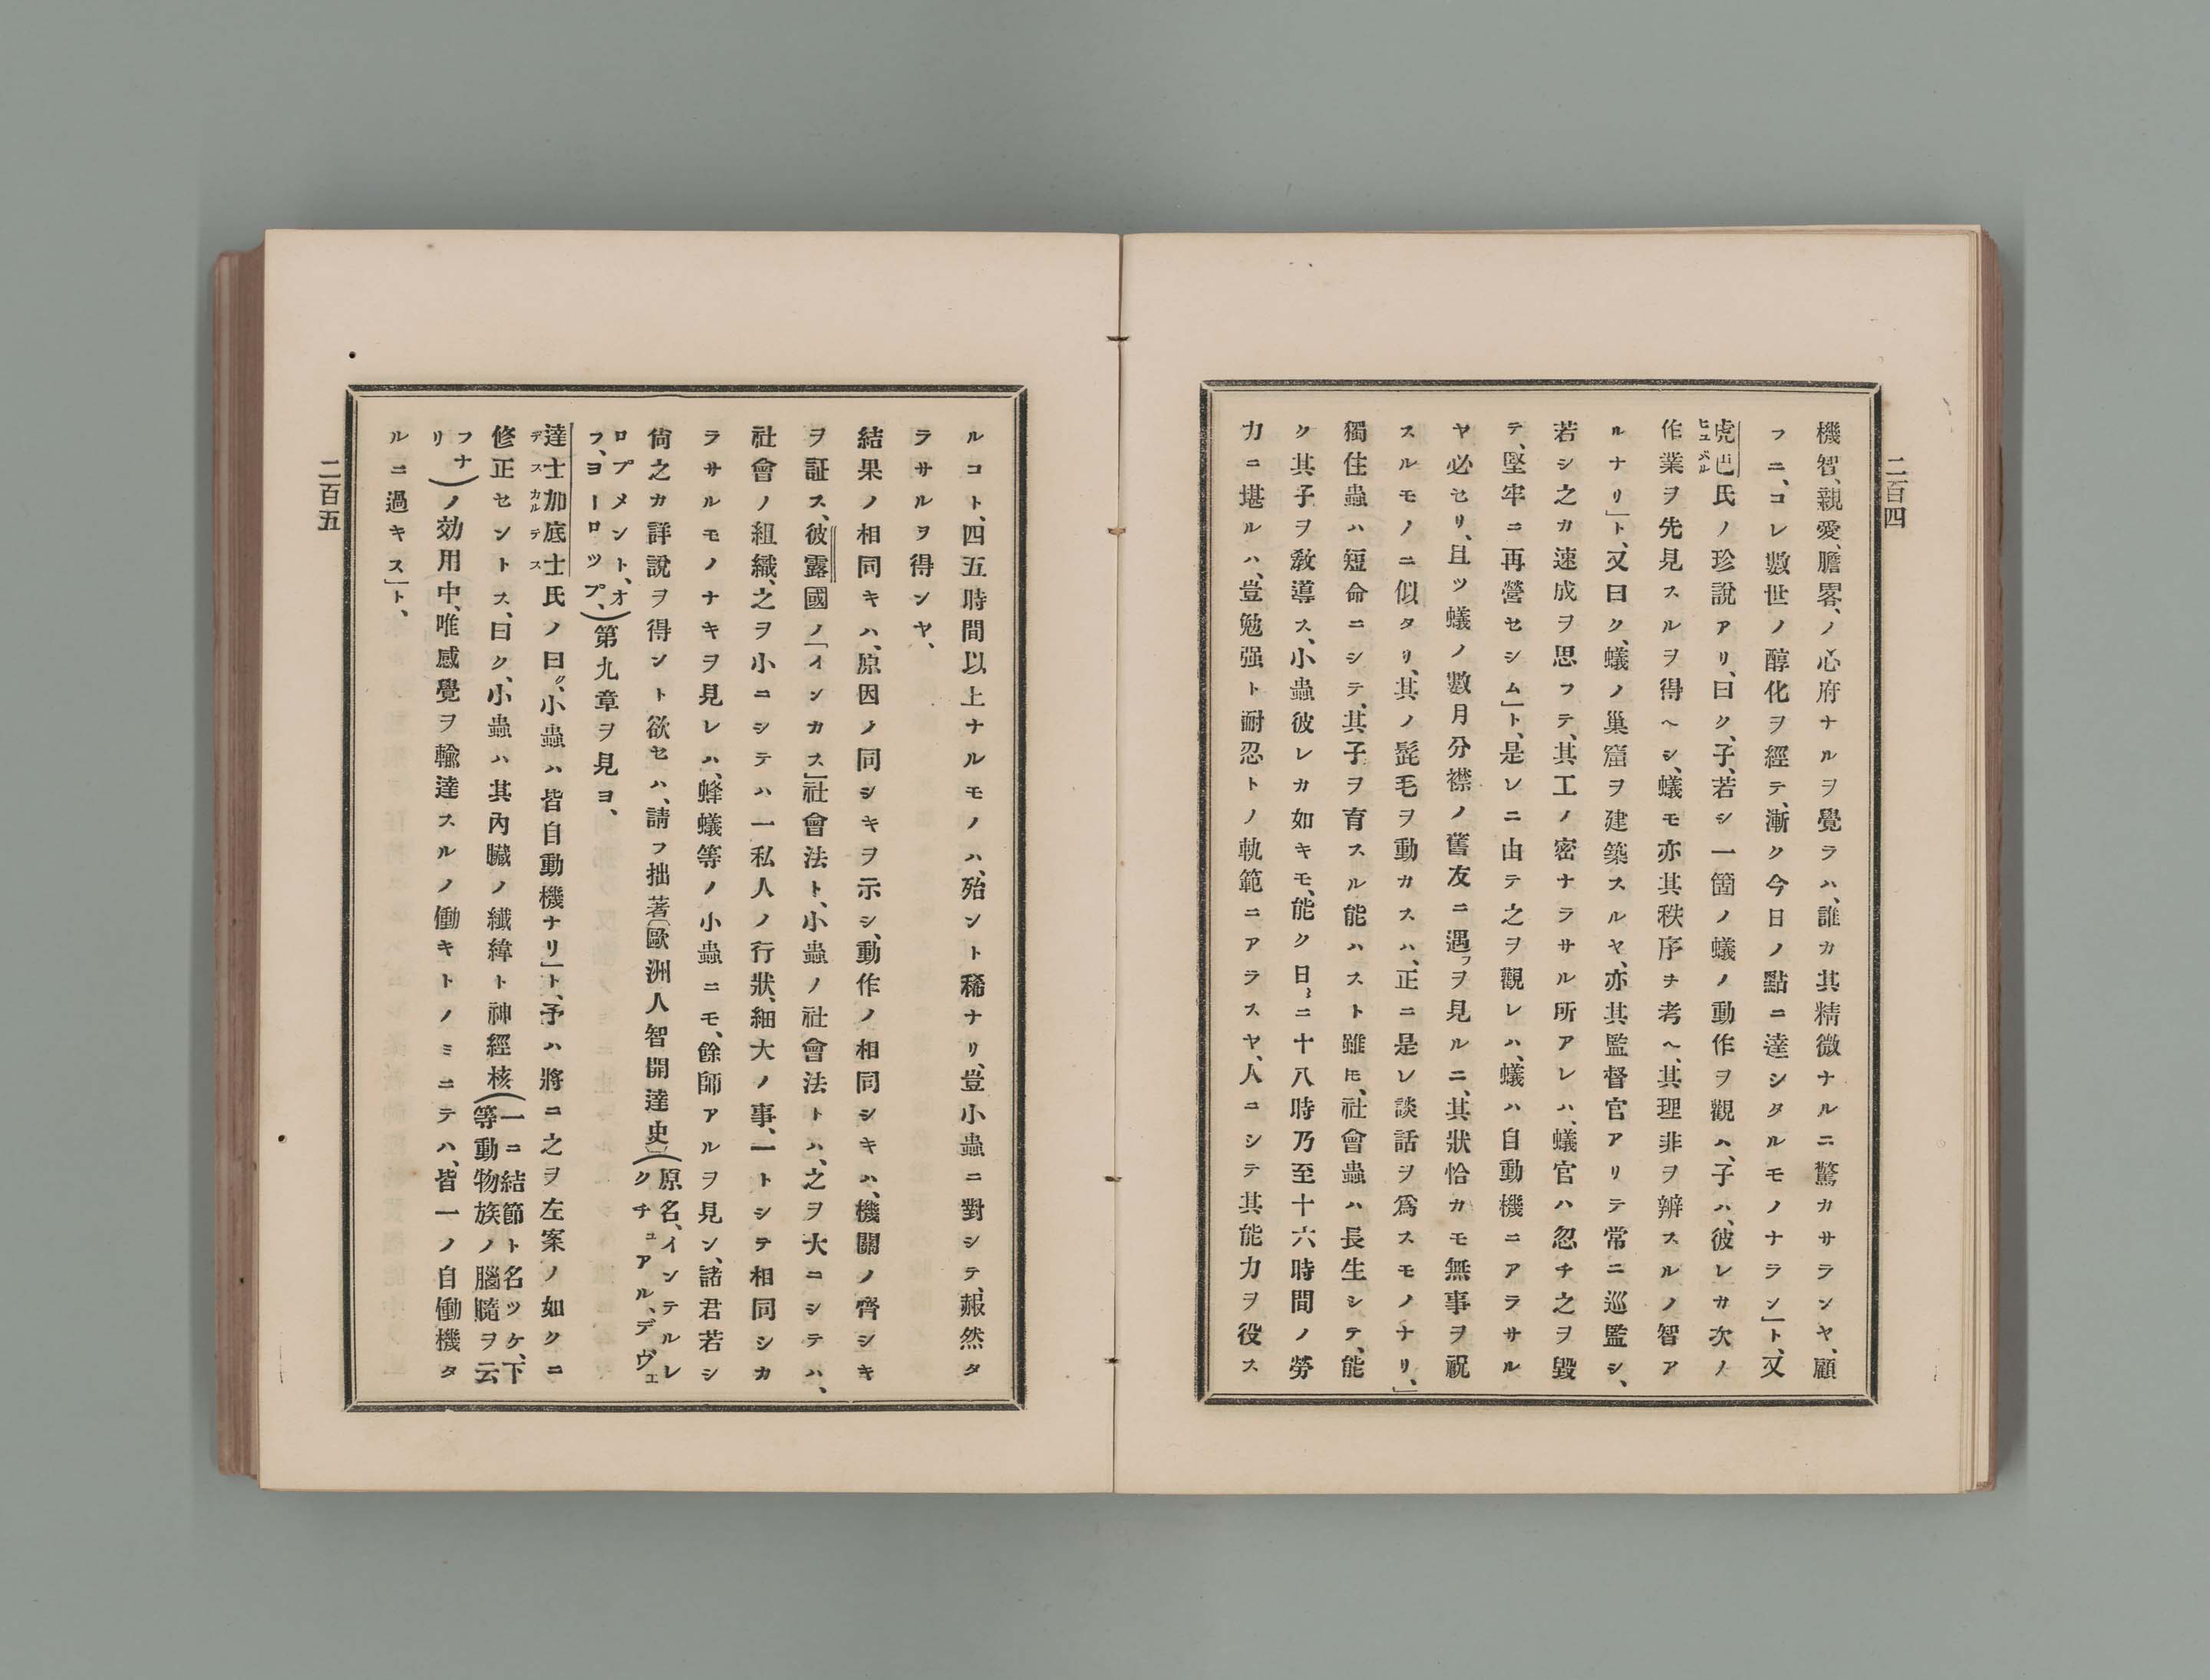 二百四
機智、親愛、膽畧、ノ心府ナルヲ覺ラハ、誰カ其精微ナルニ驚カサランヤ、顧
フニ、コレ數世ノ醇化ヲ經テ、漸ク今日ノ點ニ達シタルモノナラン」ト、又
虎巴氏ノ珍說アリ、曰ク、子、若シ一箇ノ蟻ノ動作ヲ觀ハ、子ハ、彼レカ次ノ
ヒユバル
作業ヲ先見スルヲ得ヘシ、蟻モ亦其秩序ヲ考ヘ、其理非ヲ辨スルノ智ア
ルナリ」ト、又曰ク、蟻ノ巢窟ヲ建築スルヤ、亦其監督官アリテ常ニ巡監シ、
若シ之カ速成ヲ思フテ、其工ノ密ナラサル所アレハ、蟻官ハ忽チ之ヲ毀
テ、堅牢ニ再營セシム」ト、是レニ由テ之ヲ觀レハ、蟻ハ自動機ニアラサル
ヤ必セリ、且ツ蟻ノ數月分襟ノ舊友ニ遇フヲ見ルニ、其狀恰カモ無事ヲ祝
スルモノニ似タリ、其ノ髭毛ヲ動カスハ、正ニ是レ談話ヲ爲スモノナリ、」
獨住蟲ハ短命ニシテ、其子ヲ育スル能ハスト雖𪜈、社會蟲ハ長生シテ、能
ク其子ヲ敎導ス、小蟲彼レカ如キモ、能ク日〻ニ十八時乃至十六時間ノ勞
力ニ堪ルハ、豈勉强ト耐忍トノ軌範ニアラスヤ、人ニシテ其能力ヲ役ス
ルコト、四五時間以上ナルモノハ、殆ント稀ナリ、豈小蟲ニ對シテ、赧然タ
ラサルヲ得ンヤ、
結果ノ相同キハ、原因ノ同シキヲ示シ、動作ノ相同シキハ、機關ノ齊シキ
ヲ証ス、彼露國ノ「インカス」社會法ト、小蟲ノ社會法トハ、之ヲ大ニシテハ、
社會ノ組織、之ヲ小ニシテハ一私人ノ行狀、細大ノ事、一トシテ相同シカ
ラサルモノナキヲ見レハ、蜂蟻等ノ小蟲ニモ、餘師アルヲ見ン、諸君若シ
尙之カ詳說ヲ得ント欲セハ、請フ拙著「歐洲人智開達史」(原名、インテルレ
クチュアル、デヴェ
ロプメント、オ
フ、ヨーロツプ、)第九章ヲ見ヨ、
達士加底士氏ノ曰ク、小蟲ハ皆自動機ナリ」ト、予ハ將ニ之ヲ左案ノ如クニ
デスカルテス
修正セントス、曰ク、小蟲ハ其內臟ノ纖緯ト神經核(一ニ結節ト名ツケ、下
等動物族ノ腦髓ヲ云
フナ
リ)ノ効用中、唯感覺ヲ輸達スルノ働キトノミニテハ、皆一ノ自働機タ
ルニ過キス」ト、
二百五